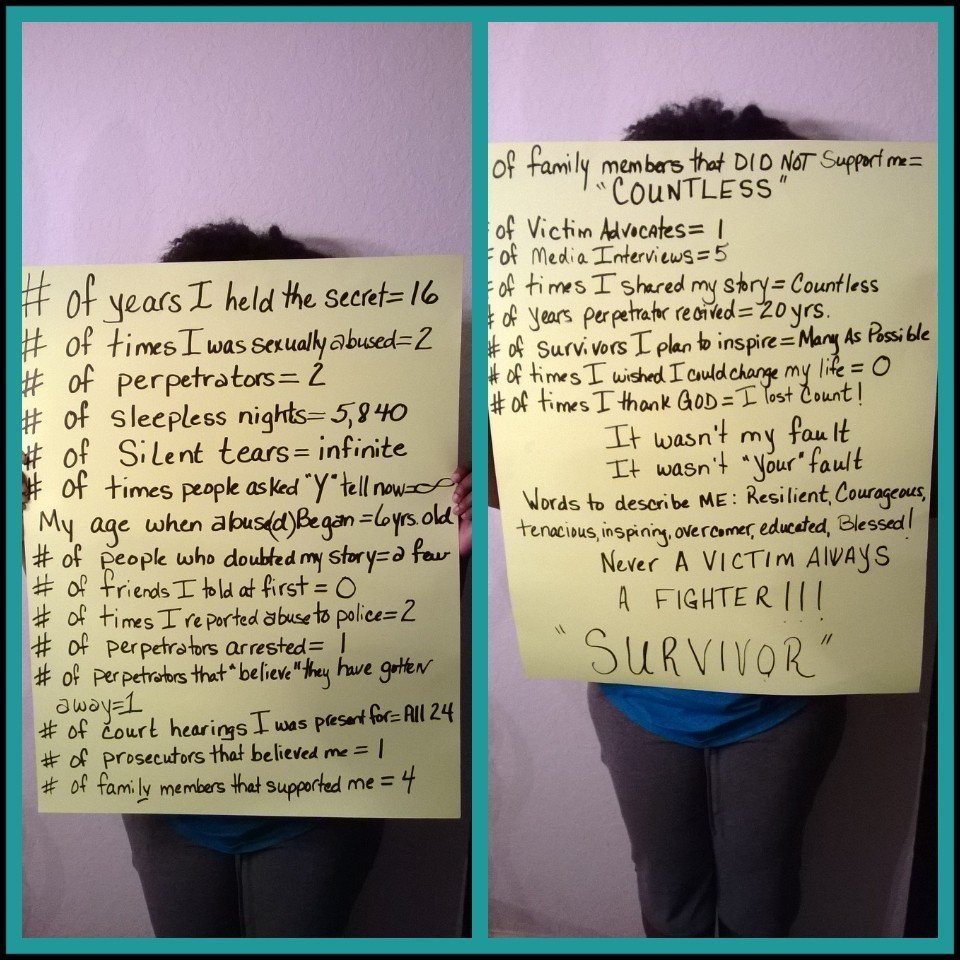 # of years I held the secret=16
# of times I was sexually abused=2
# of perpetrators=2
# of sleepless nights=5,840
# of Silent tears=infinite
# of times people asked "Y" tell now=∞
My age when abuse(d) Began=6yrs.old
# of people who doubted my story=a few
# of friends I told at first=0
# of times I reported abuse to police=2
# of perpetrators arrested=1
# of perpetrators that "believe" they have gotten
away=1
# of court hearings I was present for=All 24
# of prosecutors that believed me=1
# of family members that supported me=4
of family members that DID NOT Support me=
"COUNTLESS"
# of Victim Advocates=1
# of Media Interviews=5
# of times I shared my story=Countless
# of years perpetrator recived=20yrs.
# of survivors I plan to inspire=Many As Possible
# of times I wished I could change my life=0
# of times I thank GOD=I lost Count!
It wasn't my fault
It wasn't "your" fault
Words to describe ME: Resilient, Courageous,
tenacious, inspiring, overcomer, educated, Blessed!
Never A VICTIM AlWAYS
A FIGHTER!!!
"SURVIVOR"